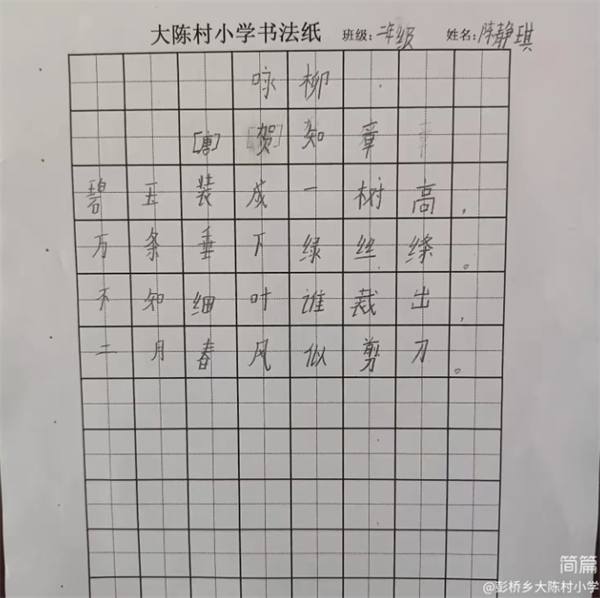 大陈村小学书法纸 班级：二年级 姓名：陈静琪
咏柳
[唐]贺知章
碧玉装成一树高，
万条垂下绿丝绦。
不知细叶谁裁出，
二月春风似剪刀。
简篇
@彭桥乡大陈村小学